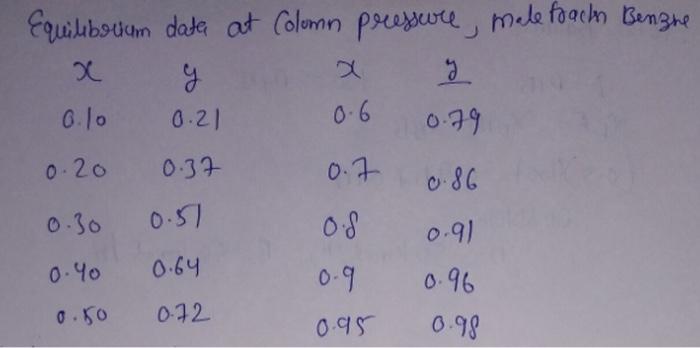 Equilibrium data at Column pressure, mole fractn Benzne
x y x y
0.10 0.21 0.6 0.79
0.20 0.37 0.7 0.86
0.30 0.51 0.8 0.91
0.40 0.64 0.9 0.96
0.50 0.72 0.95 0.98